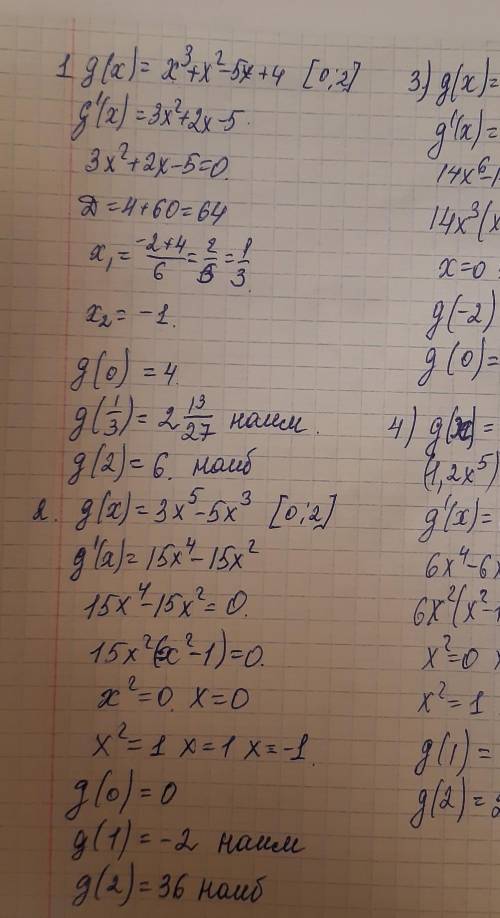 1 g(x) = x³+x²-5x+4 [0;2]
g'(x) = 3x²+2x-5.
3x²+2x-5=0.
D = 4+60=64
x₁ = (-2+4)/6 = 2/6 = 1/3.
x₂ = -1.
g(0) = 4.
g(1/3) = 2 13/27 наим.
g(2) = 6. наиб
2. g(x) = 3x⁵-5x³ [0;2]
g'(x) = 15x⁴-15x²
15x⁴-15x²=0.
15x²(x²-1)=0.
x²=0. x=0
x²=1 x=1 x=-1.
g(0) = 0
g(1) = -2 наим
g(2) = 36 наиб
3.) g(x)=
g'(x)=
14x⁶-1
14x³(x
x=0
g(-2)
g(0)=
4) g(x) =
(1,2x⁵)
g'(x)=
6x⁴-6x
6x²(x²-1
x²=0 x
x²=1
g(1)=
g(2)=